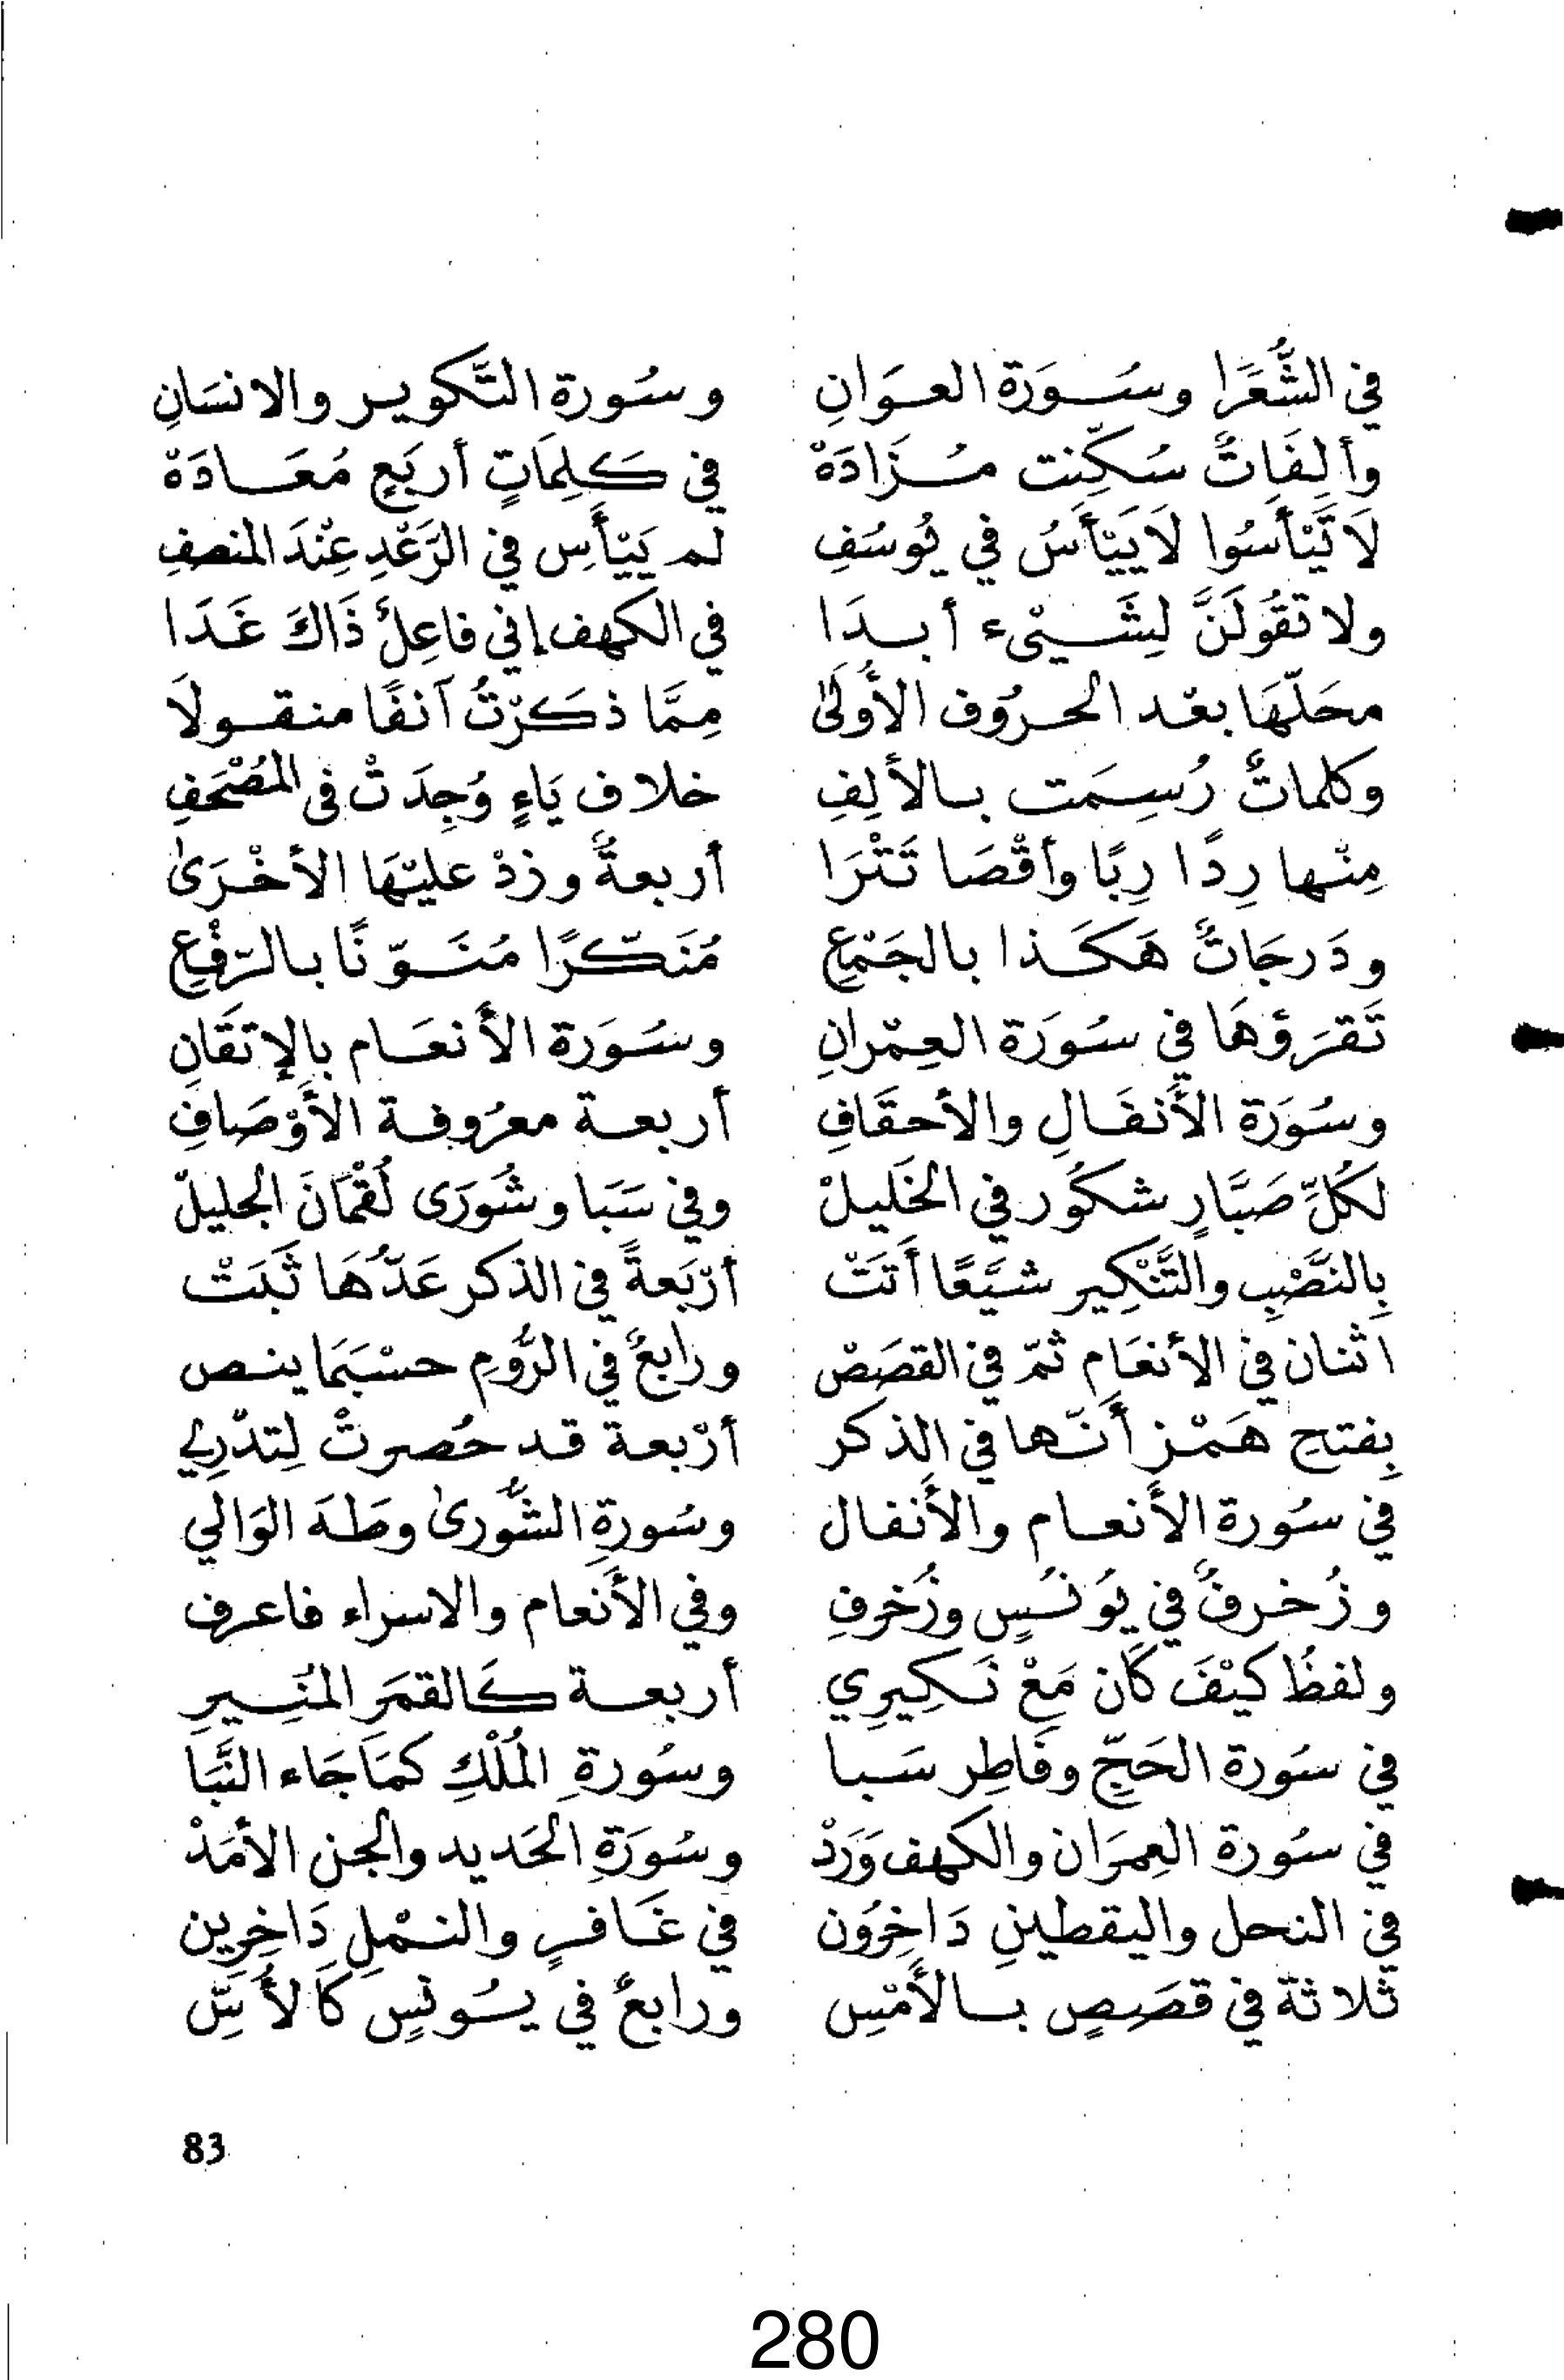 في الشُّعَرَا وسُورَة العوَانِ وسُورة التَّكوير والانسَانِ
وألِفَاتٌ سُكِّنت مُزَادَهْ في كَلِمَاتٍ أربَعٍ مُعَادَهْ
لَا تَيْأَسُوا لَا يَيْأَسُ في يُوسُفِ لم يَيْأَسِ في الرَّعْدِ عِنْدَ المنصفِ
ولا تقُولَنَّ لِشَيْىء أبدَا في الكهف إني فاعِلٌ ذَاكَ غَدَا
محَلّهَا بعْد الحرُوف الأُولَىٰ مِمَّا ذكَرْتُ آنفًا منقولَا
وكلماتٌ رُسِمَت بالألِفِ خلاف يَاءٍ وُجِدَتْ فى المُصْحَفِ
مِنْها رِدًا رِبًا وأقْصَا تَتْرَا أربعةٌ وزدْ عليْهَا الأخْرَىٰ
ودَرجَاتٌ هَكَذا بالجَمْعِ مُنَكّرًا مُنَوّنًا بالرّفْعِ
تَقرَؤهَا في سُورَة العِمْرانِ وسُورَة الأنعَام بِالإتقَانِ
وسُورَة الأنفَالِ والأحقَافِ أربعة معرُوفة الأوْصَافِ
لكُلِّ صَبَّارٍ شكُور في الخَليلْ وفي سَبَا وشُورَى لُقْمَانَ الجليلْ
بِالنَّصْبِ والتَّنْكِير شيَعًا أتَتْ أرْبَعةً في الذكر عَدُّهَا ثَبَتْ
اثنان في الأنعَام ثمّ في القصَصْ ورابعٌ في الرُّومِ حسْبَمَا ينص
بِفتح هَمْز أنّها في الذكر أرْبعة قد حُصرتْ لِتدْرِي
في سُورة الأنعام والأنفال وسُورةِ الشُّورىٰ وطَهَ الوَالي
وزُخرفٌ في يُونُسٍ وزُخرفِ وفي الأنعام والاسراء فاعرف
ولفظُ كيْفَ كَان مَعْ نَكِيرِي أربعة كَالقمَر المُنِيرِ
في سُورة الحَجّ وفَاطِر سَبا وسُورةِ المُلْكِ كمَا جَاء النَّبَا
في سُورة العِمرَان والكهف وَرَدْ وسُورَةِ الحَديد والجن الأمَدْ
في النحل واليقطينِ دَاخِرُون في غَافرٍ والنمْلِ دَاخِرِين
ثَلاثة في قصَصٍ بالأمْسِ ورابعٌ في يُونسٍ كَالأُسِّ
83
280